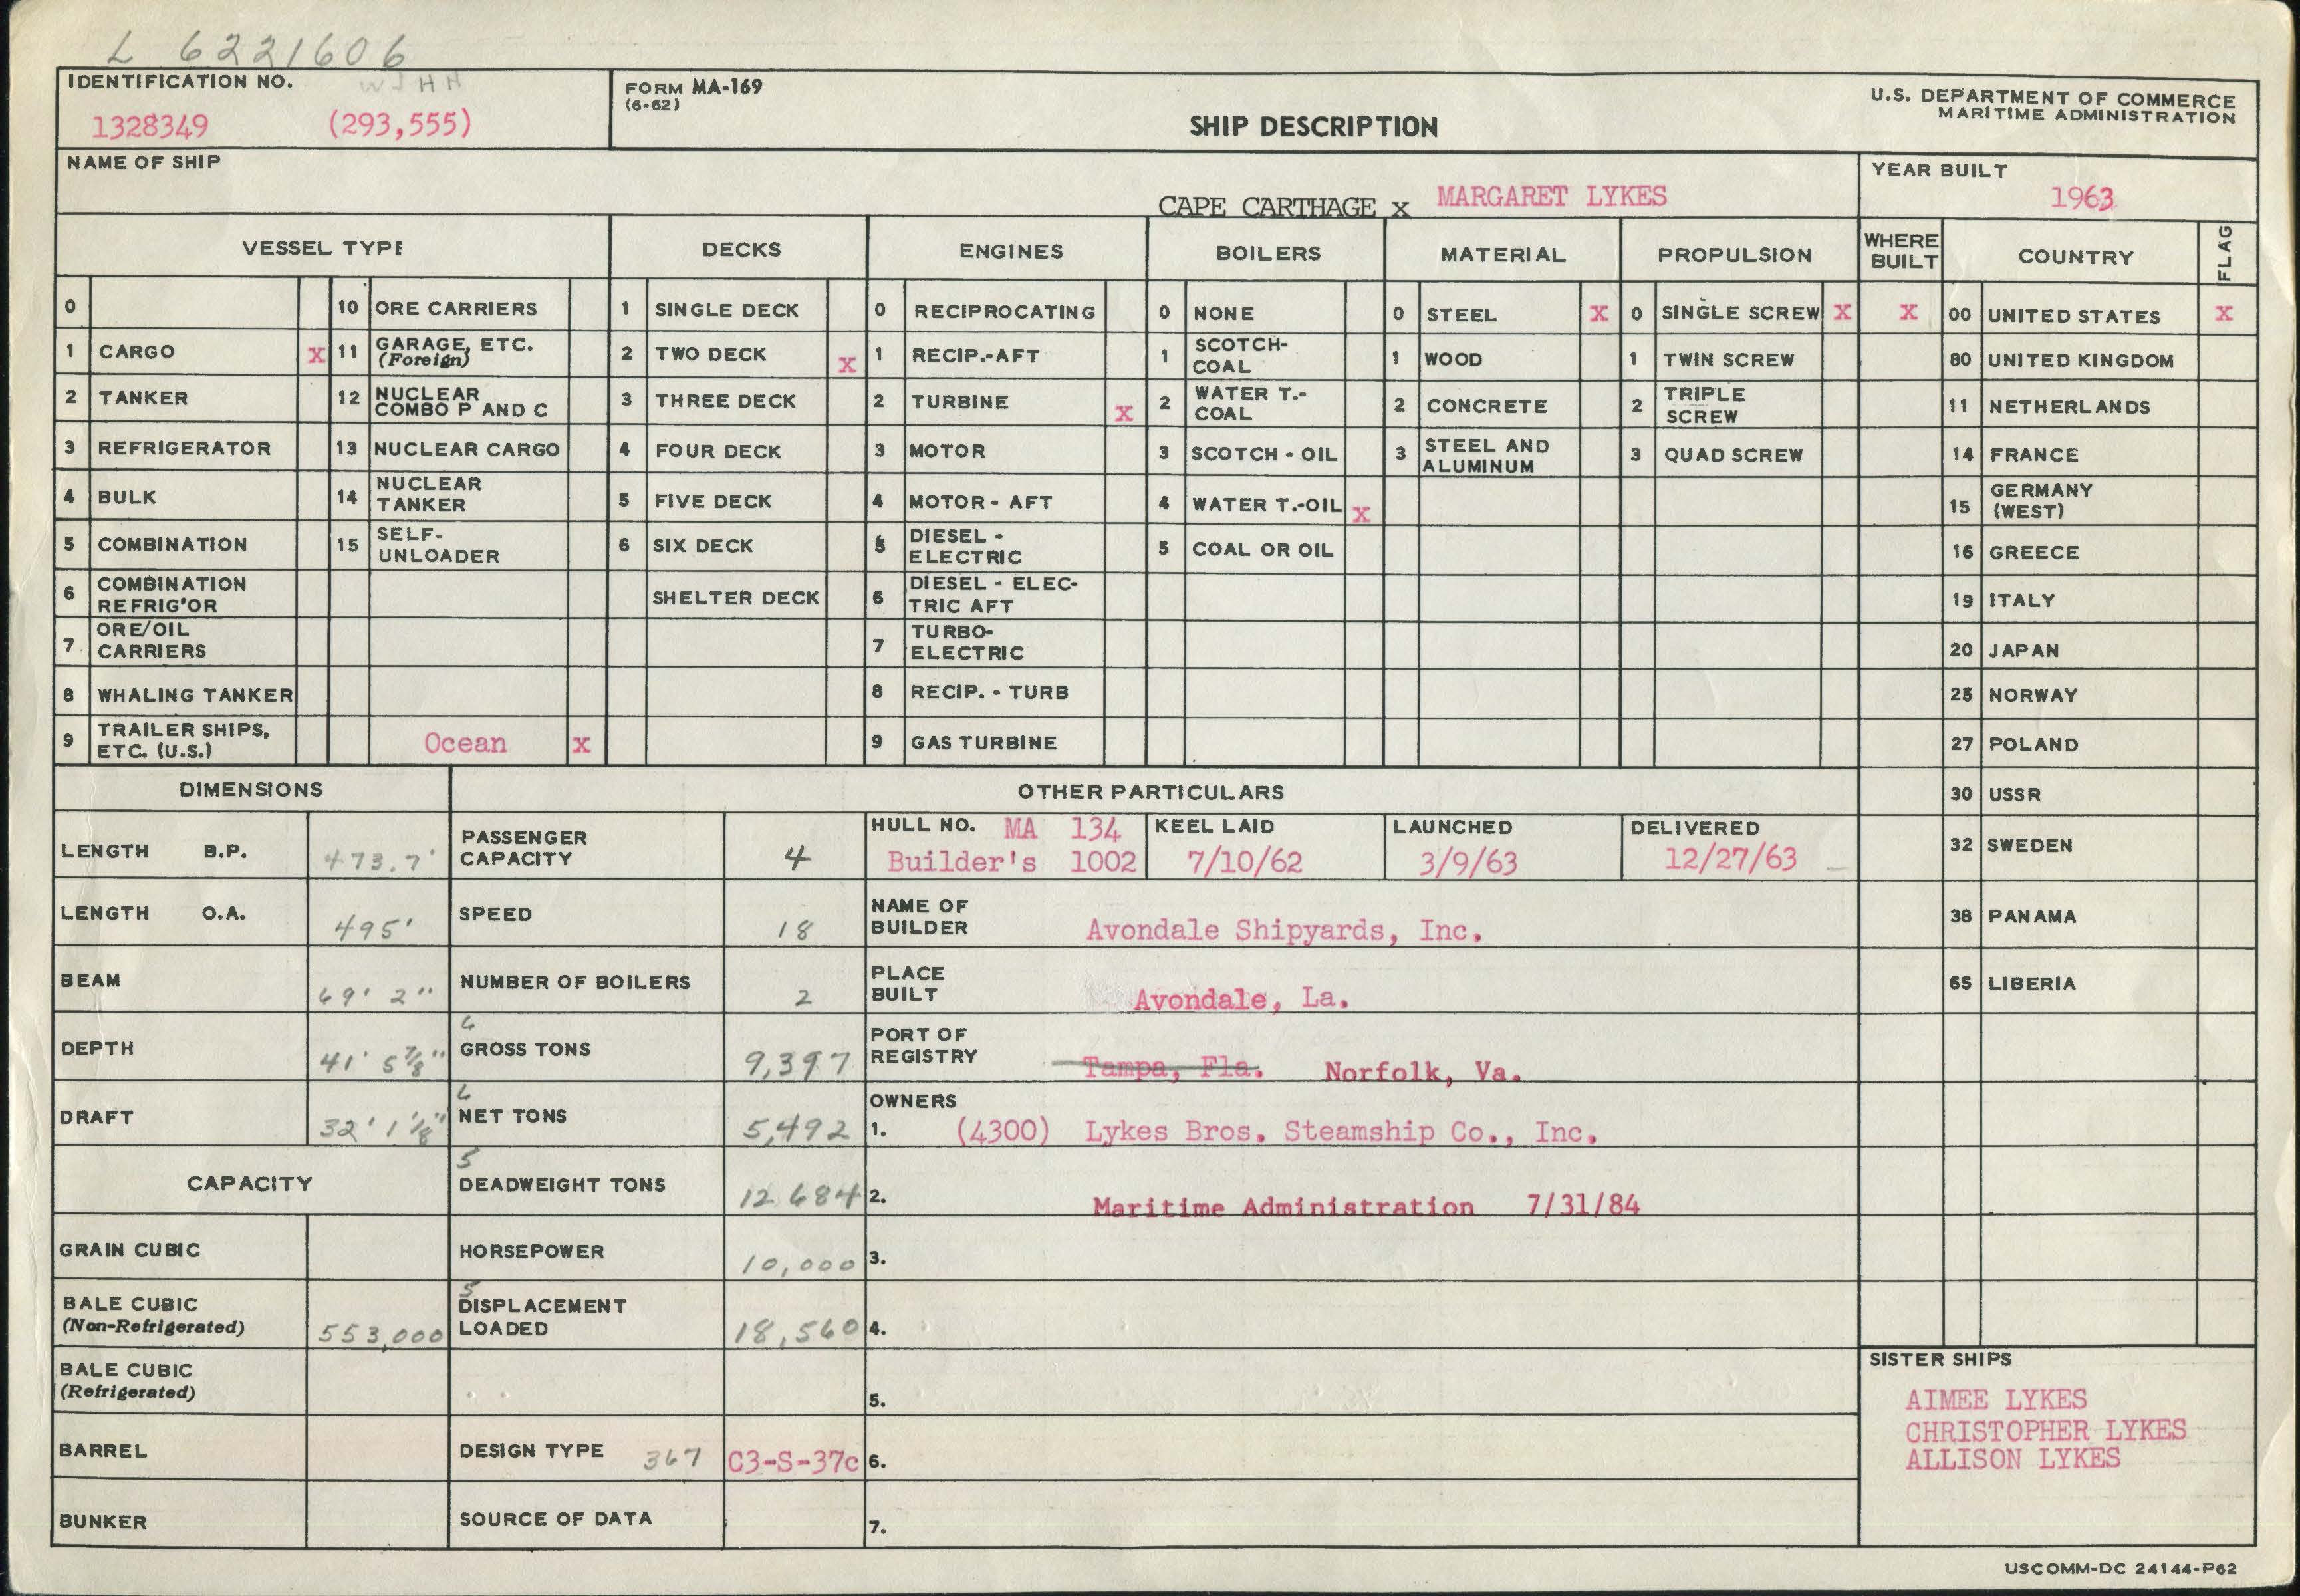 L 6221606
IDENTIFICATION NO. WJHH
1328349 (293,555)
FORM MA-169
(6-62)
SHIP DESCRIPTION
U.S. DEPARTMENT OF COMMERCE
MARITIME ADMINISTRATION
NAME OF SHIP
CAPE CARTHAGE x MARGARET LYKES
YEAR BUILT
1963
VESSEL TYPE DECKS ENGINES BOILERS MATERIAL PROPULSION WHERE BUILT COUNTRY FLAG
0 10 ORE CARRIERS 1 SINGLE DECK 0 RECIPROCATING 0 NONE 0 STEEL x 0 SINGLE SCREW x x 00 UNITED STATES x
1 CARGO x 11 GARAGE, ETC. (Foreign) 2 TWO DECK x 1 RECIP.-AFT 1 SCOTCH-COAL 1 WOOD 1 TWIN SCREW 80 UNITED KINGDOM
2 TANKER 12 NUCLEAR COMBO P AND C 3 THREE DECK 2 TURBINE x 2 WATER T.-COAL 2 CONCRETE 2 TRIPLE SCREW 11 NETHERLANDS
3 REFRIGERATOR 13 NUCLEAR CARGO 4 FOUR DECK 3 MOTOR 3 SCOTCH - OIL 3 STEEL AND ALUMINUM 3 QUAD SCREW 14 FRANCE
4 BULK 14 NUCLEAR TANKER 5 FIVE DECK 4 MOTOR - AFT 4 WATER T.-OIL x 15 GERMANY (WEST)
5 COMBINATION 15 SELF-UNLOADER 6 SIX DECK 5 DIESEL - ELECTRIC 5 COAL OR OIL 16 GREECE
6 COMBINATION REFRIG'OR SHELTER DECK 6 DIESEL - ELECTRIC AFT 19 ITALY
7 ORE/OIL CARRIERS 7 TURBO-ELECTRIC 20 JAPAN
8 WHALING TANKER 8 RECIP. - TURB 25 NORWAY
9 TRAILER SHIPS, ETC. (U.S.) Ocean x 9 GAS TURBINE 27 POLAND
DIMENSIONS OTHER PARTICULARS 30 USSR
LENGTH B.P. 473.7' PASSENGER CAPACITY 4 HULL NO. MA 134 Builder's 1002 KEEL LAID 7/10/62 LAUNCHED 3/9/63 DELIVERED 12/27/63 32 SWEDEN
LENGTH O.A. 495' SPEED 18 NAME OF BUILDER Avondale Shipyards, Inc. 38 PANAMA
BEAM 69' 2" NUMBER OF BOILERS 2 PLACE BUILT Avondale, La. 65 LIBERIA
DEPTH 41' 5 7/8" 6 GROSS TONS 9,397 PORT OF REGISTRY Tampa, Fla. Norfolk, Va.
DRAFT 32' 1 1/8" 6 NET TONS 5,492 OWNERS 1. (4300) Lykes Bros. Steamship Co., Inc.
CAPACITY 5 DEADWEIGHT TONS 12 684 2. Maritime Administration 7/31/84
GRAIN CUBIC HORSEPOWER 10,000 3.
BALE CUBIC (Non-Refrigerated) 553,000 5 DISPLACEMENT LOADED 18,560 4.
BALE CUBIC (Refrigerated) 5.
BARREL DESIGN TYPE 367 C3-S-37c 6.
BUNKER SOURCE OF DATA 7.
SISTER SHIPS
AIMEE LYKES
CHRISTOPHER LYKES
ALLISON LYKES
USCOMM-DC 24144-P62